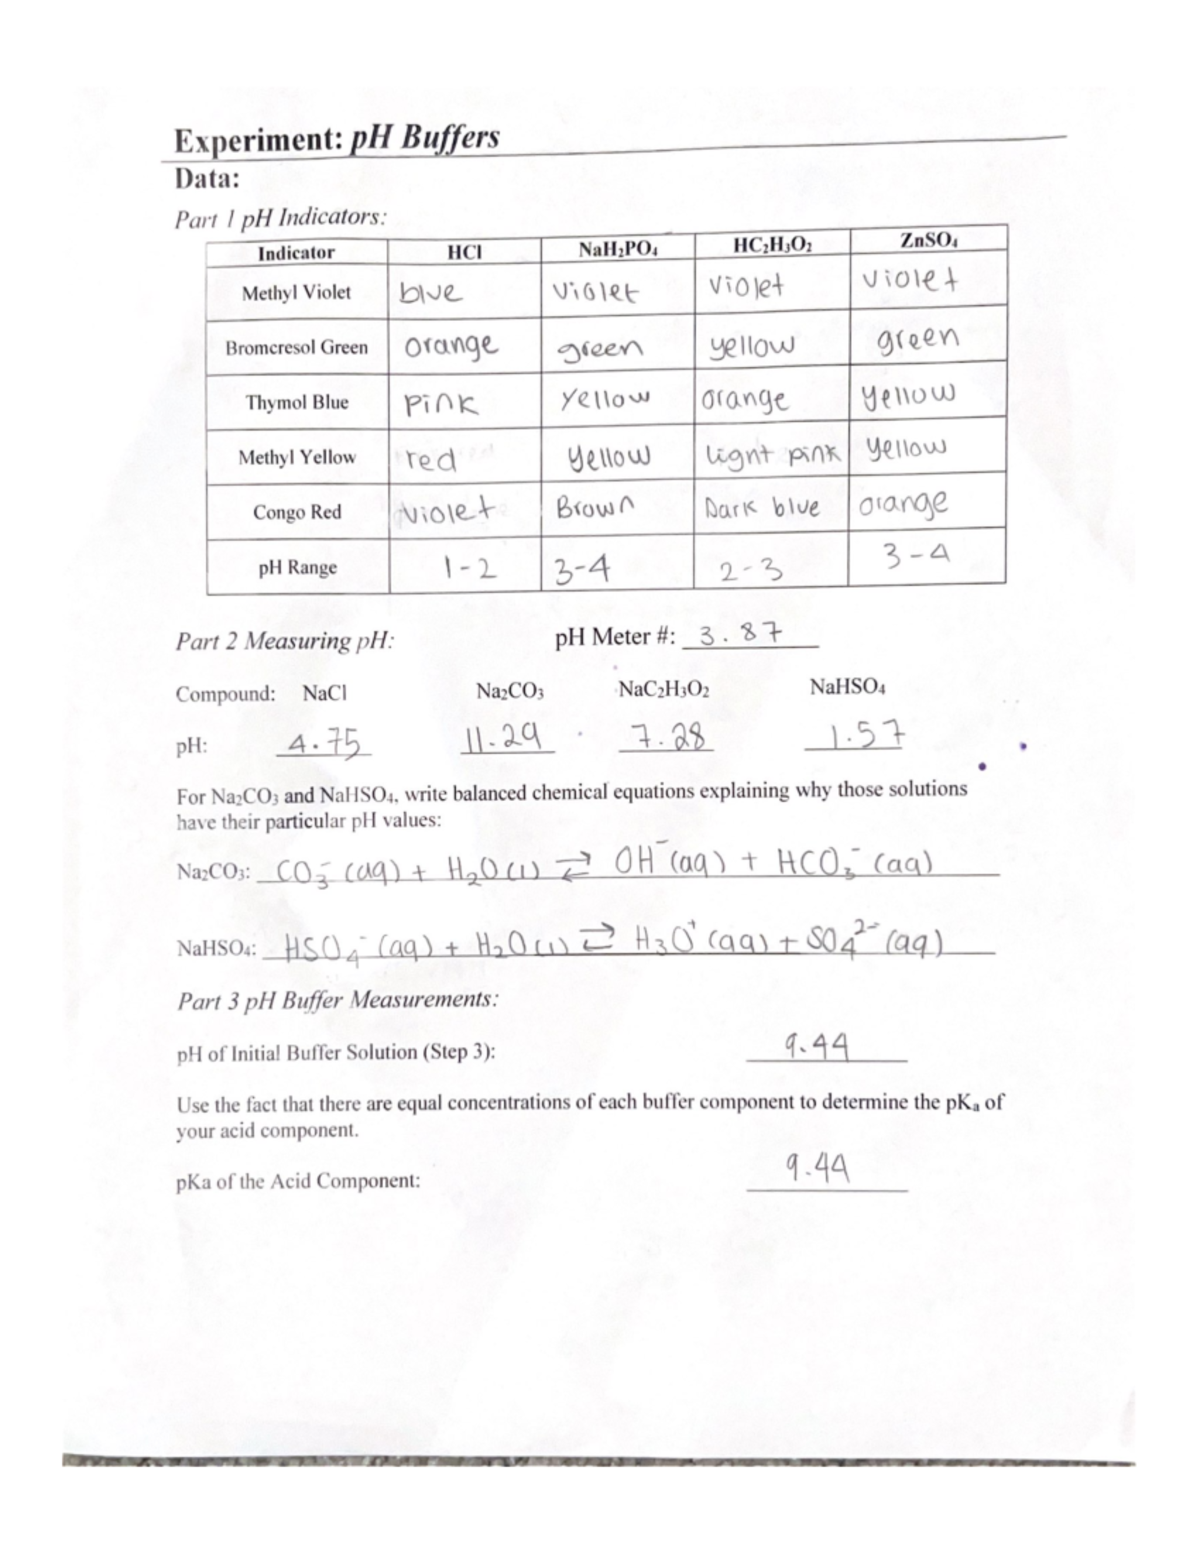 Experiment: pH Buffers
Data:
Part 1 pH Indicators:
Indicator HCl NaH₂PO₄ HC₂H₃O₂ ZnSO₄
Methyl Violet blue violet violet violet
Bromcresol Green orange green yellow green
Thymol Blue pink yellow orange yellow
Methyl Yellow red yellow light pink yellow
Congo Red violet Brown Dark blue orange
pH Range 1-2 3-4 2-3 3-4
Part 2 Measuring pH: pH Meter #: 3.87
Compound: NaCl Na₂CO₃ NaC₂H₃O₂ NaHSO₄
pH: 4.75 11.29 7.28 1.57
For Na₂CO₃ and NaHSO₄, write balanced chemical equations explaining why those solutions
have their particular pH values:
Na₂CO₃: CO₃⁻ (aq) + H₂O(l) ⇌ OH⁻(aq) + HCO₃⁻ (aq)
NaHSO₄: HSO₄⁻ (aq) + H₂O(l) ⇌ H₃O⁺ (aq) + SO₄²⁻ (aq)
Part 3 pH Buffer Measurements:
pH of Initial Buffer Solution (Step 3): 9.44
Use the fact that there are equal concentrations of each buffer component to determine the pKₐ of
your acid component.
pKa of the Acid Component: 9.44